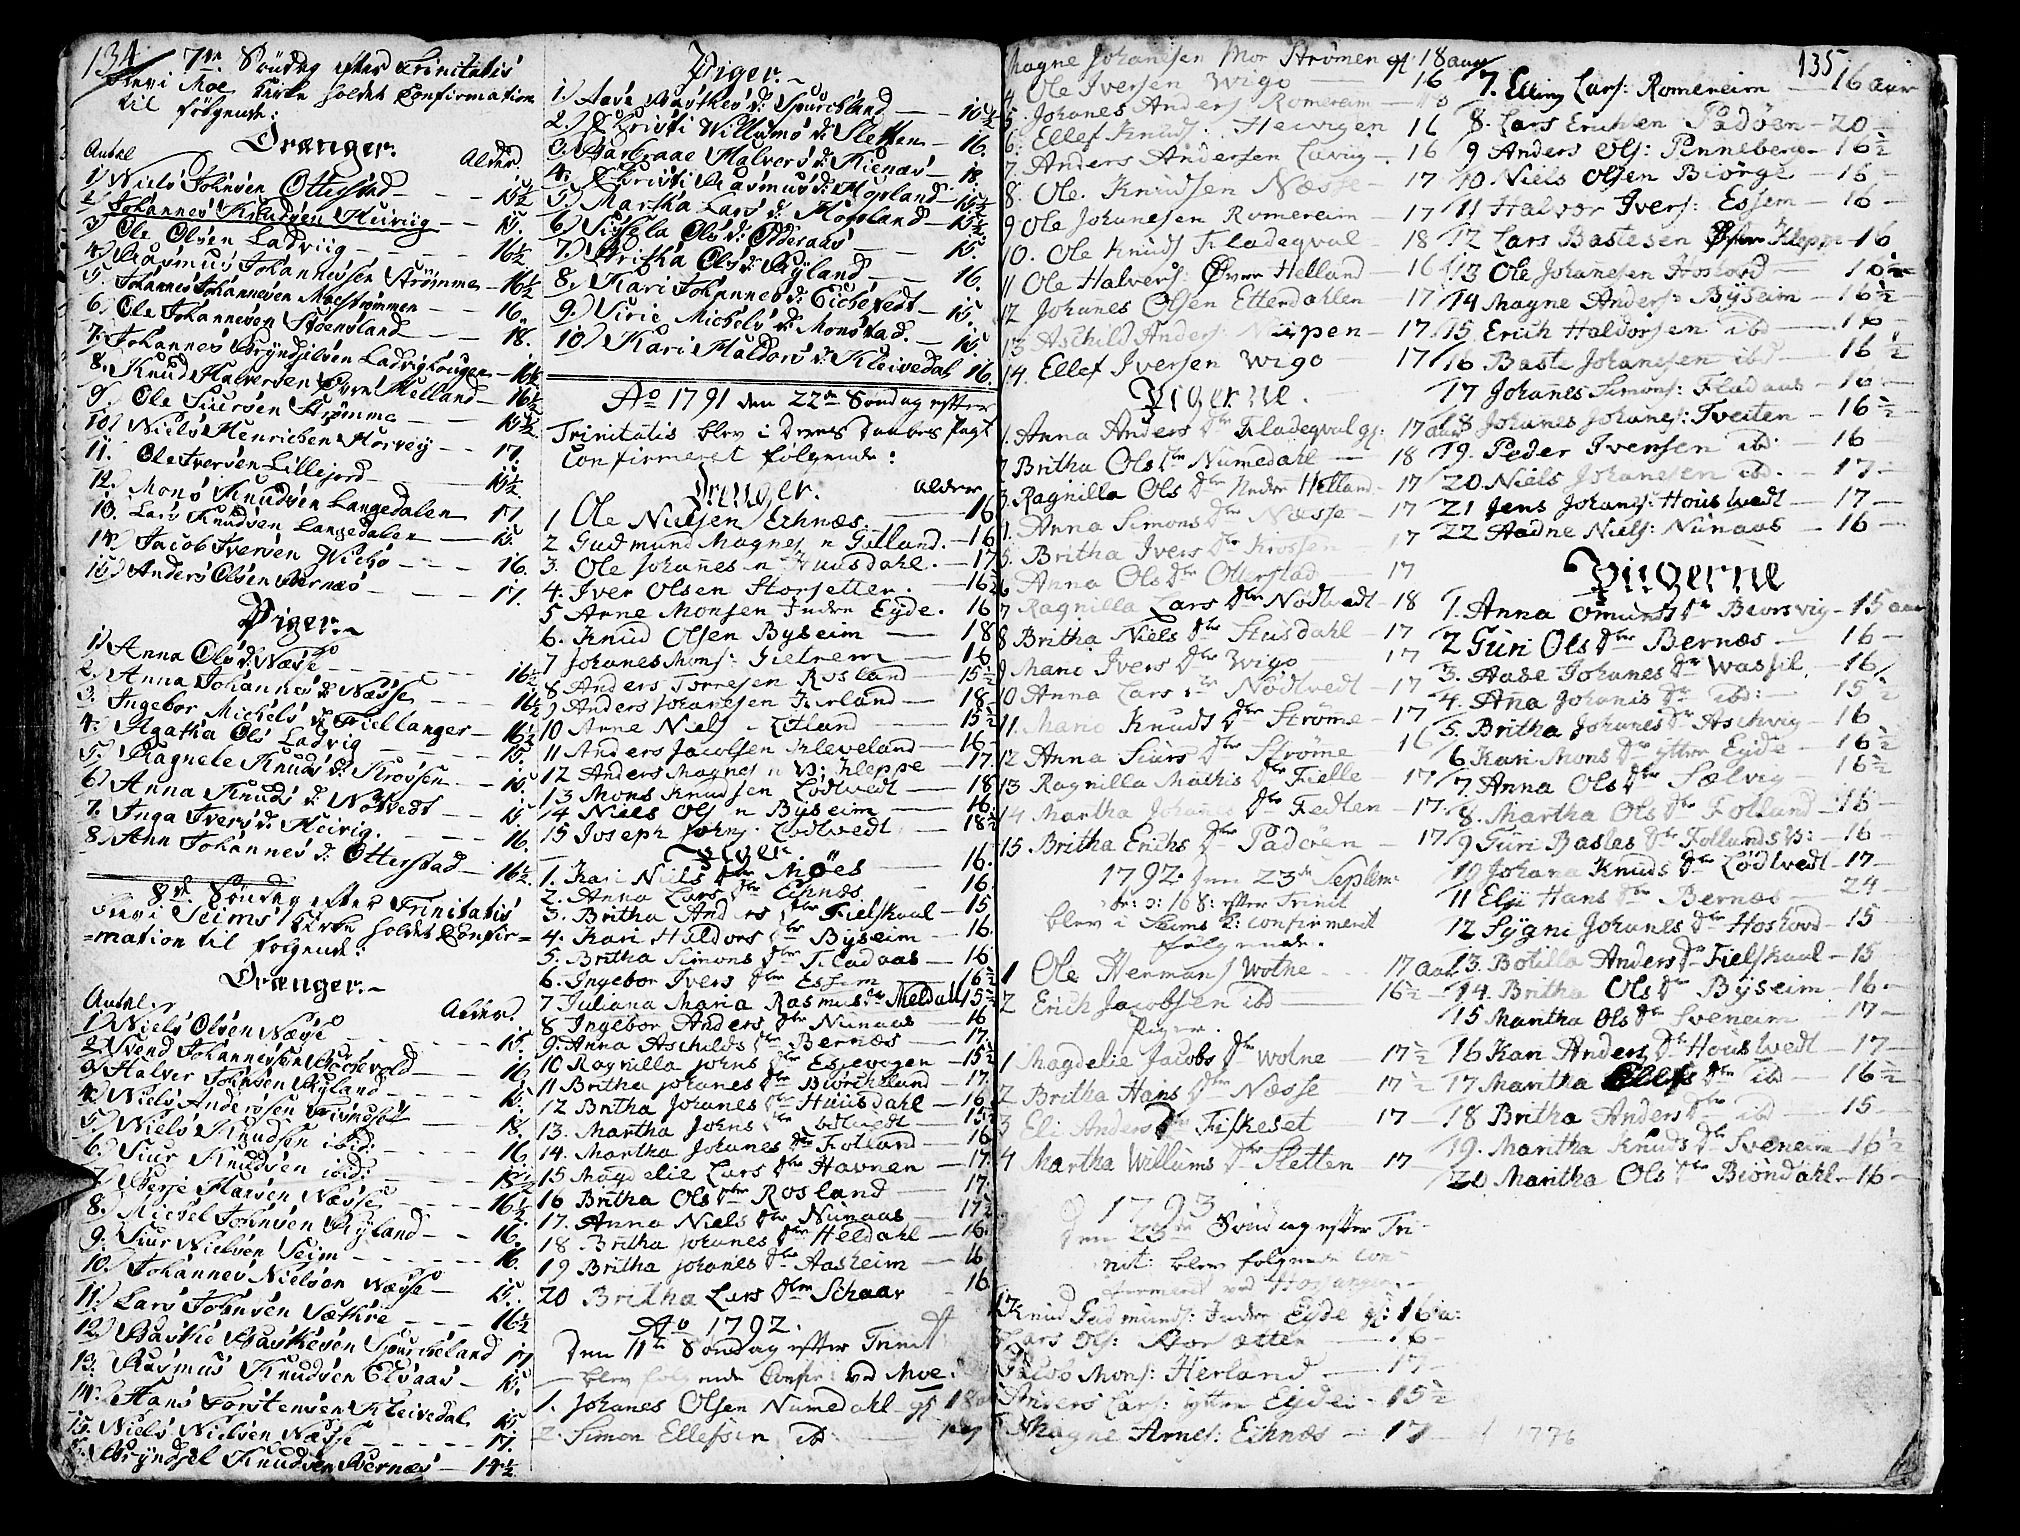 134
7de Søndag efter Trinitatis
blev i Moe Kirke holdet Confirmation
til følgende:
Drenger.
Antal Alder.
1) Niels Johnsen Otterstad — 15½
2. Johannes Knudsen Heiviig — 15.
3) Ole Olsen Ladviig — 16½
4) Rasmus Johannessen Strømme — 16½
5. Johannes Johannesen Moestrømmen — 16.
6) Ole Johannesen — 18.
7. Johannes Bryndjelsen Ladvighougen — 16½
8. Knud Halversen Øvre Helland — 16½
9. Ole Siursen Strømme — 15½
10) Niels Henrichsen — 17.
11. Ole Iversen Lillejord — 15½
12. Mons Knudsen Langedalen — 17
13. Lars Knudsen Langedalen — 15.
14) Jacob Iversen — 16.
15) Anders Olsen Bernæs — 17.
Piger.
1) Anna Ols d. Næsse — 16½
2. Anna Johannes d. Næsse — 16½
3. Ingebor Michels d. Fiellanger — 16½
4. Agatha Ols Ladvig — 15.
5) Ragnele Knuds d. Krossen — 15.
6) Anna Knuds d. Nøtvedt — 15
7. Inga Ivers d. Heivig — 16.
8. Ann Johannes d. Otterstad — 16½
8de Søndag efter Trinitatis
blev i Seims Kirke holdet Confir-
mation til følgende:
Drenger.
Antal. Alder.
1) Niels Olsen Næsse — 15.
2. Svend Johannessen — 16
3) Halver Johnsen Ryland — 15.
4) Niels Andersen — 18.
5) Niels Knudsen ibid. — 16
6. Siur Knudsen ibid. — 18½
7) Børje Larsen Næsse — 16½
8. Michel Johnsen Ryland — 16.
9. Siur Nielsen Seim — 16.
10. Johannes Nielsen Næsse — 15.
11) Lars Johnsen Sæthre — 16½
12) Bastie Bastiesen — 17
13. Rasmus Knudsen Elsaas — 15.
14. Hans Torstensen Kleivedal 15
15. Niels Nielsen Næsse — 17.
Bryndjel Knudsen Bernæs — 14½
Piger.
1) Aase Basties d. — 15½
2) Christi Willums d. Sletten — 16.
3. Barbraae Halvers d. Rienæs — 18.
4. Christi Rasmus d. Hopland — 15½
5) Martha Lars d. Hopland — 15½
6) Sissela Ols d. Odderaas — 15.
7) Britha Ols d. Ryland — 16.
8. Kari Johannes d. Eichetvedt — 15.
9. Sirie Michels d. Monstad — 15.
10) Kari Haldors d. Kleivedal 16.
Ao 1791 den 22de Søndag efter
Trinitatis blev i Deres Daabes Pagt
Confirmeret følgende:
Drenger. Alder
1 Ole Nielsen Echnæs — 16
2 Gudmund Magnes n Gilland. — 16
3. Ole Johannes n Huusdahl. — 17
4. Iver Olsen Storsetter. — 16½
5 Arne Monsen Indre Eyde. 16
6. Knud Olsen Byseim — 18
7 Johanes Mons: Gietnem — 16
8 Anders Torresen Rosland — 15½
9 Anders Johansen Herland — 18
10 Arne Niels n — 15½
11 Anders Jacobsen Kleveland — 16
12 Anders Magnes n Ø: Kleppe — 17
13 Mons Knudsen Lødtvedt — 18
14 Niels Ols n Byseim — 16.
15 Joseph Johns. Lødtvedt — 18½
Piger.
1. Kari Niels Dtr Møes — 16.
2. Anna Lars Dtr Echnæs — 16.
3. Britha Anders Dtr Fielskaal — 15
4. Kari Haldors Dtr Byseim — 16.
5. Britha Simons Dtr Fladaas — 16
6. Ingebor Ivers Dtr Essem — 16½
7 Juliana Maria Rasmus Dtr Meldall 15½
8 Ingebor Anders Dtr Nunaas — 16
9. Anna Aschilds Dtr Bernæs — 17.
10 Ragnilla Johns Dtr Essjevigen — 15½
11 Britha Johanes Dtr Biørchlund 17.
12 Britha Johanes Dtr Huusdahl — 16
13. Martha Johns Dtr Lødtvedt — 15
14. Martha Johanes Dtr Folland — 16
15 Magdelie Lars Dtr Havnen — 17.
16 Britha Ols Dtr Rosland — 17
17. Anna Niels Dtr Nunaas — 17½
18. Britha Johanes Dtr Heldahl — 16.
19 Britha Johanes Dtr Aasheim — 16
20 Britha Lars Dtr Schaar — 16
Ao 1792.
Den 11te Søndag efter Trinit
blev følgende Confir: ved Moe.
1. Johanes Olsen Numedahl gl 18
2. Simon Ellefsen ib —
Magne Johanesen Mor Strømen gl 18 aar
4 Ole Iversen Wigo — 16
5. Johanes Anders Romereim
6. Ellef Knuds: Heivigen 16
7. Anders Andersen Lavig — 16
8. Ole Knudsen Næsse — 17
9 Ole Johanesen Romereim — 17
10. Ole Knuds Fladeqval — 18
11 Ole Halvers: Øvre Helland — 16
12 Johanes Olsen Etterdahlen — 17
13 Aschild Anders: Nipen — 17
14. Ellef Iversen Wigo — 17
Pigerne.
1. Anna Anders Dtr Fladeqval gl: 17 aar
2 Britha Ols Dtr Numedahl — 18
3. Ragnilla Ols Dtr Nedre Helland. 17
4. Anna Simons Dtr Næsse — 17
5. Britha Ivers Dtr Krossen 17
6 Anna Ols Dtr Otterstad — 17
7 Ragnilla Lars Dtr Nødtvedt — 18
8 Britha Niels Dtr Husdahl — 17
9 Mario Ivers Dtr Wigo — 17
10 Anna Lars Dtr Nødtvedt — 17
11. Mario Knuds Dtr Strøme — 17
12 Anna Siurs Dtr Strøme 16
13 Ragnilla Mathis Dtr Fielle — 17
14 Martha Johanes Dtr Fedten — 17
15 Britha Erichs Dtr Padøen — 17
1792. den 23de Septem
br: 16 S: efter Trinit
blev i Seims K: confirmeret
følgende.
1 Ole Hermans Wotne — 17 aar
2 Erich Jacobsen ib — 16½
Piger.
1 Magdelie Jacobs Dtr Wotne — 17½
2 Britha Hans Dtr Næsse — 17½
3 Eli Anders Dtr Fiskeset 17
4 Martha Willums Dtr Sletten 17
1793
den 23de Søndag efter Tri-
nit: blev følgende con-
firmeret ved Hosanger.
1 Knud Gudmunds: Indre Eyde gl: 16 a:
Lars Ols: Storsætter — 16
Jacob Mons: Herland — 17
Anders Lars: yttre Eyde — 15½
Magne Arnes: Echnæs — 17
1776
135
7. Elling Lars: Romereim — 16 aar
8. Lars Erichsen Padøen — 20
9 Anders Ols: Penneberg — 16½
10 Niels Olsen Biørge — 16
11 Halvor Ivers: Essem — 16
12 Lars Bastesen Øvre Kleppe — 16
13 Ole Johanesen Hoskovd — 16½
14 Magne Anders: Byseim — 16½
15 Erich Haldorsen ibd — 16
16 Baste Johanesen ibd — 16½
17 Johanes Simons: Fladaas — 16
18 Johanes Johanes: Tveiten — 16½
19. Peder Iversen ib: — 16
20 Niels Johanesen ib. — 17
21 Jens Johans: Houstvedt — 17
22 Aadne Niels: Nunaas — 16
Piigerne
1. Anna Omunds Dr Biorsvig — 15 aar
2 Guri Ols Dtr Bernæs — 16
3. Aase Johanes Dr Wassel — 16
4. Ana Johanis Dr ib: — 15½
5. Britha Johanes Dr Aschvig — 16
6 Kari Mons Dr ytre Eyde — 16½
7. Anna Ols Dtr Sælvig — 16½
8. Martha Ols Dtr Folland — 16
9 Guri Bastes Dtr Follands Ø: — 16
10 Johana Knuds Dtr Lødtvedt — 17
11 Elji Hans Dtr Bernæs — 24
12 Sygni Johanes Dtr Hoskovd — 15
13. Botilla Anders Dr Fielskaal — 15
14. Britha Ols Dr Byseim — 16
15 Martha Ols Dr Sveneim — 17
16 Kari Anders Dr Houstvedt — 17
17 Martha Ellefs Dtr ib — 16½
18 Britha Anders Dr ib — 15
19. Martha Knuds Dr Sveneim — 16½
20 Martha Ols Dtr Biøndahl — 16